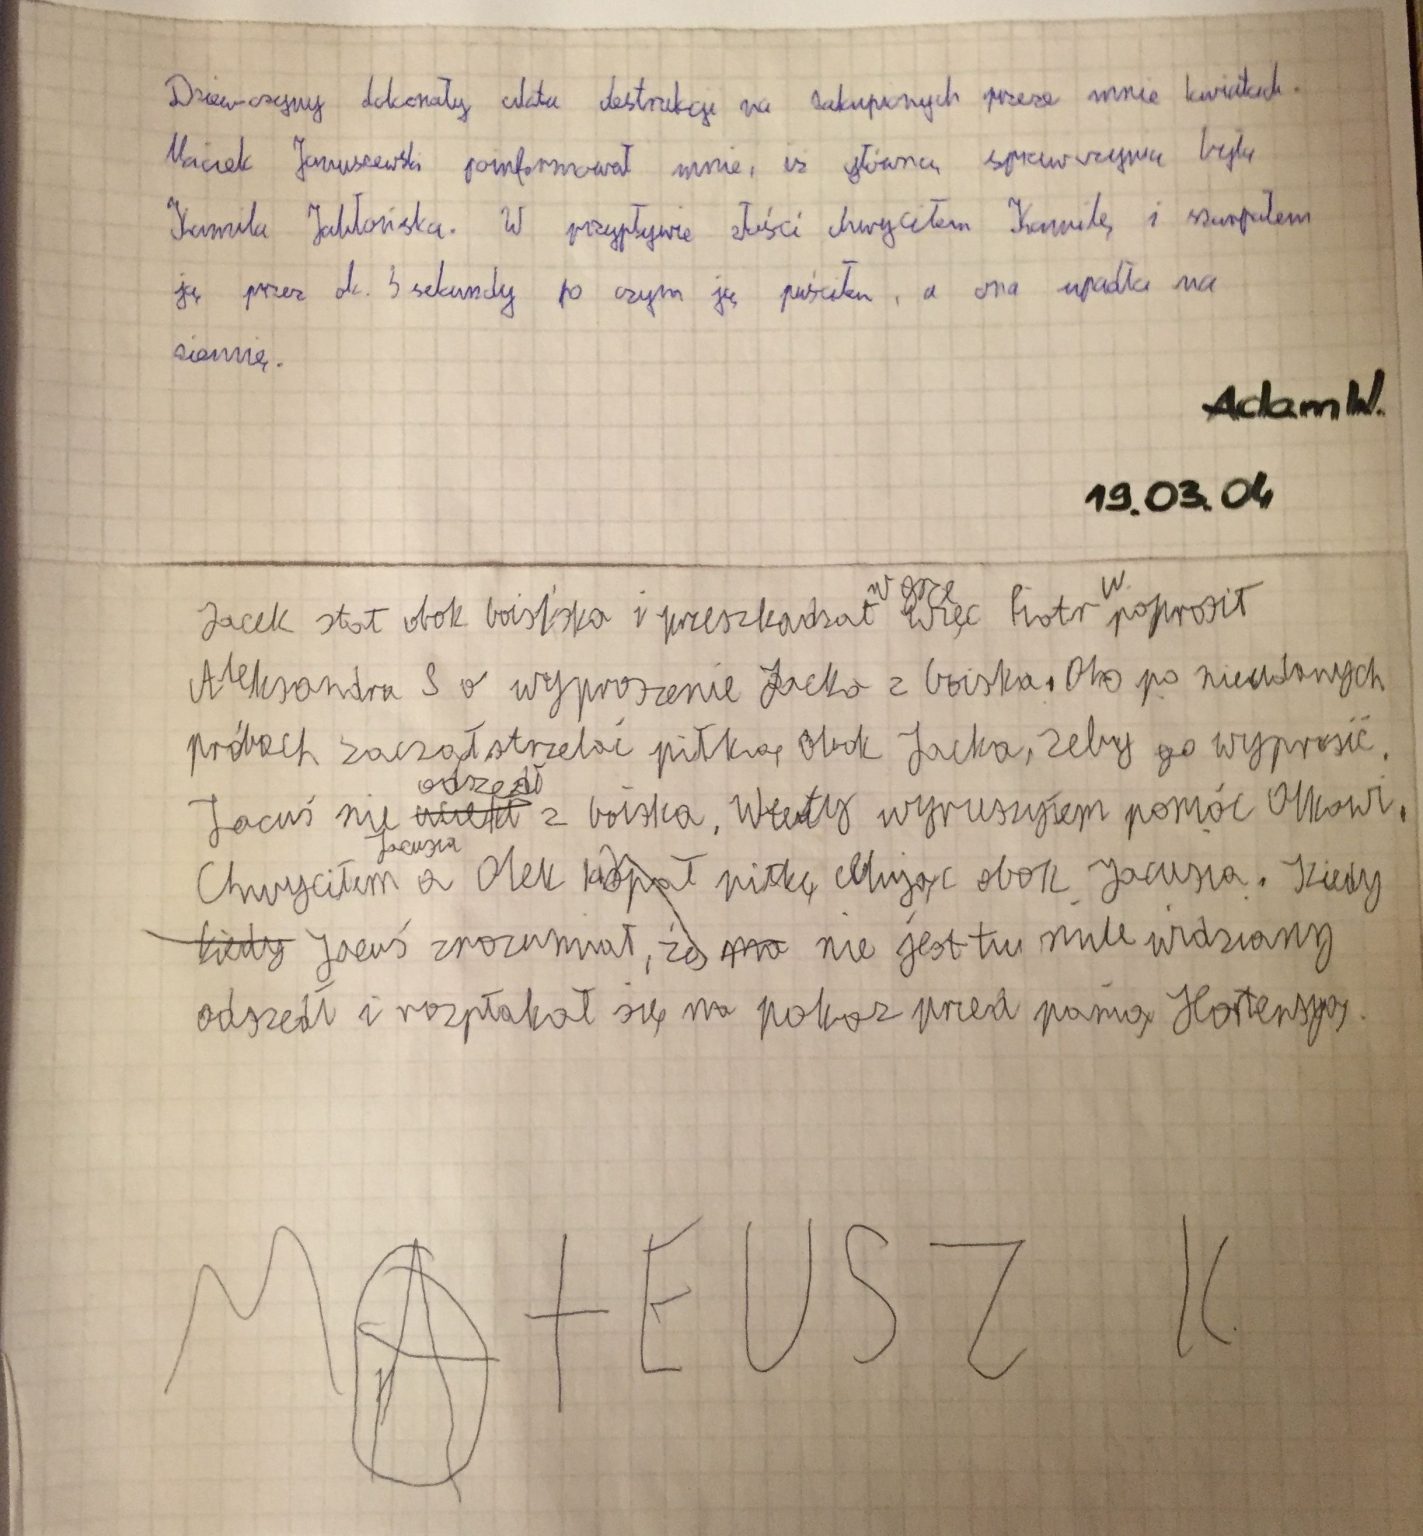 Dziewczyny dokonały aktu destrukcji na zakupionych przeze mnie kwiatkach.
Maciek Januszewski poinformował mnie, iż główną sprawczynią była
Kamila Jabłońska. W przypływie złości chwyciłem Kamilę i szarpałem
ją przez ok. 3 sekundy po czym ją puściłem, a ona upadła na
ziemię.
Adam W.
19.03.04
w grę W.
Jacek stał obok boiska i przeszkadzał Więc Piotr poprosił
Aleksandra S o wyproszenie Jacka z boiska. Olo po nieudanych
próbach zaczął strzelać piłką obok Jacka, żeby go wyprosić.
odszedł
Jacuś nie z boiska, Wtedy wyruszyłem pomóc Olkowi.
Jacusia
Chwyciłem a Olek kopał piłkę celując obok Jacusia. Kiedy
kiedy Jacuś zrozumiał, że ma nie jest tu mile widziany
odszedł i rozpłakał się na pokaz przed panią Hortensją.
MATEUSZ K.